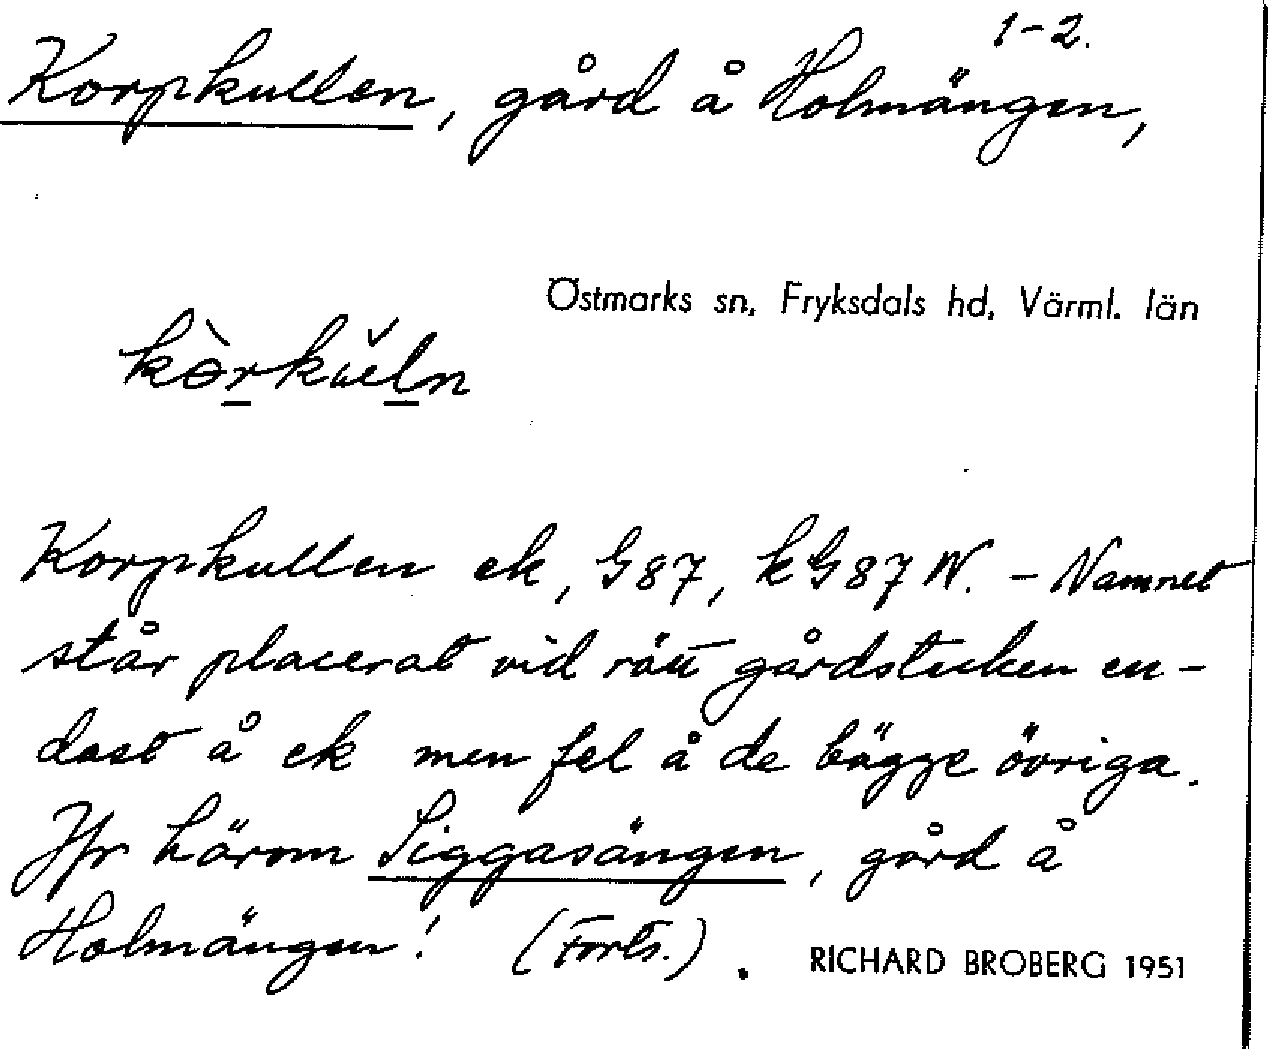 1-2.
Korpkullen, gård å Holmängen,
Östmarks sn, Fryksdals hd, Värml. län
kòrkŭln
Korpkullen ek, G87, kG87 N. - Namnet
står placerat vid rätt gårdstecken en-
dast å ek men fel å de bägge övriga.
Jfr härom Siggasängen, gård å
Holmängen! (Forts.).
RICHARD BROBERG 1951